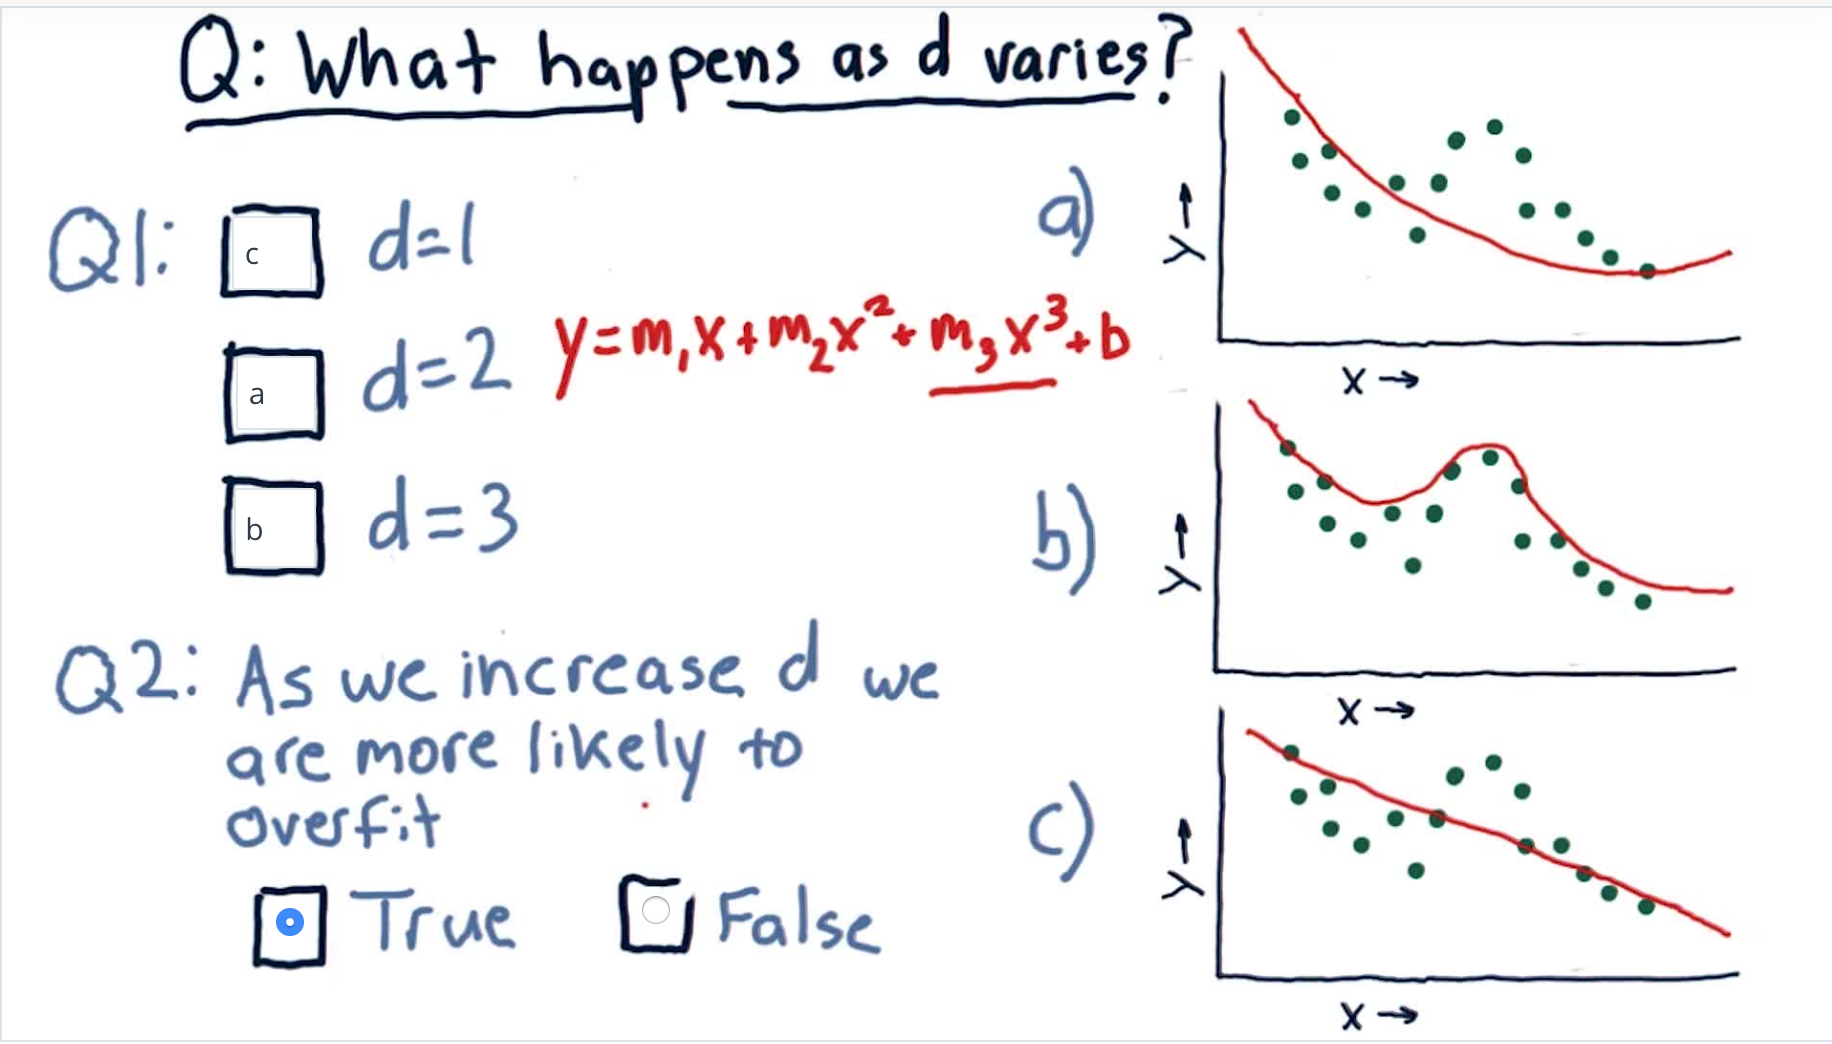 Q: What happens as d varies?
Q1: c d=1
a d=2 y=m₁x+m₂x²+m₃x³+b
b d=3
Q2: As we increase d we
are more likely to
overfit
True False
a)
Y→
X→
b)
Y→
X→
c)
Y→
X→